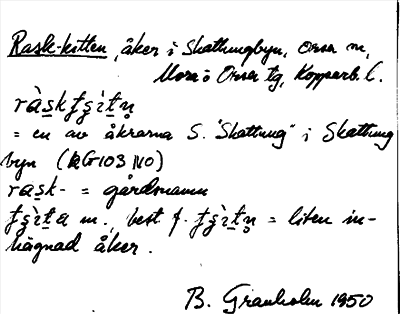 Rask-kitten, åker i Skattungbyn, Orsa sn,
Mora ö Orsa tg, Kopparb. l.
ràskt̬s̬ìt̠n̥
= en av åkrarna S. "Skattung" i Skattung
byn (RG103 110)
rask- = gårdsnamn
t̬s̬ìt̠a m., best f. t̬s̬ìt̠n̥ = liten in-
hägnad åker.
B. Granholm 1950